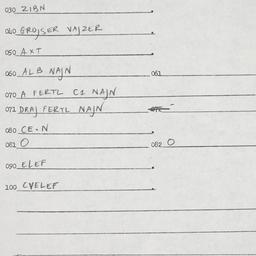 030 ZIBN
040 GROJSER VAJZER
050 AXT
060 ALB NAJN 061
070 A FERTL C1 NAJN
071 DRAJ FERTL NAJN
080 CE-N
081 O 082 O
090 ELEF
100 CVELEF